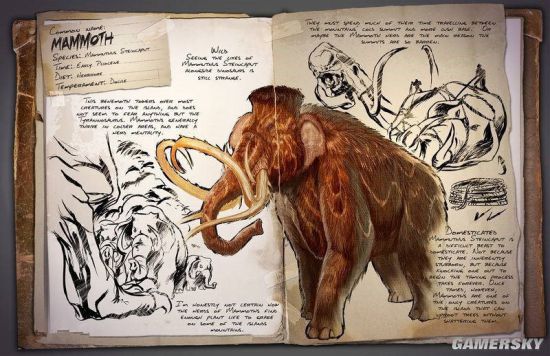 Common Name:
MAMMOTH
Species: Mammuthus Steincaput
Time: Early Pliocene
Diet: Herbivore
Temperament: Docile
Wild
Seeing the likes of
Mammuthus Steincaput
alongside dinosaurs is
still strange.
This behemoth towers over most
creatures on the island, and does
not seem to fear anything but the
Tyrannosaurus. Mammoths generally
thrive in colder areas, and have a
herd mentality.
I'm honestly not certain how
the herds of Mammoths find
enough plant life to graze
on some of the islands
mountains.
They must spend much of their time travelling between
the mountains cold summit and more lush base. Or
maybe the Mammoth herds are the main reason the
summits are so barren.
Domesticated
Mammuthus Steincaput is
a difficult beast to
domesticate. Not because
they are inherently
stubborn, but because
knocking one out to
begin the taming process
takes forever. Once
tamed, however,
Mammoths are one of
the only creatures on
the island that can
uproot trees without
shattering them.
GAMERSKY